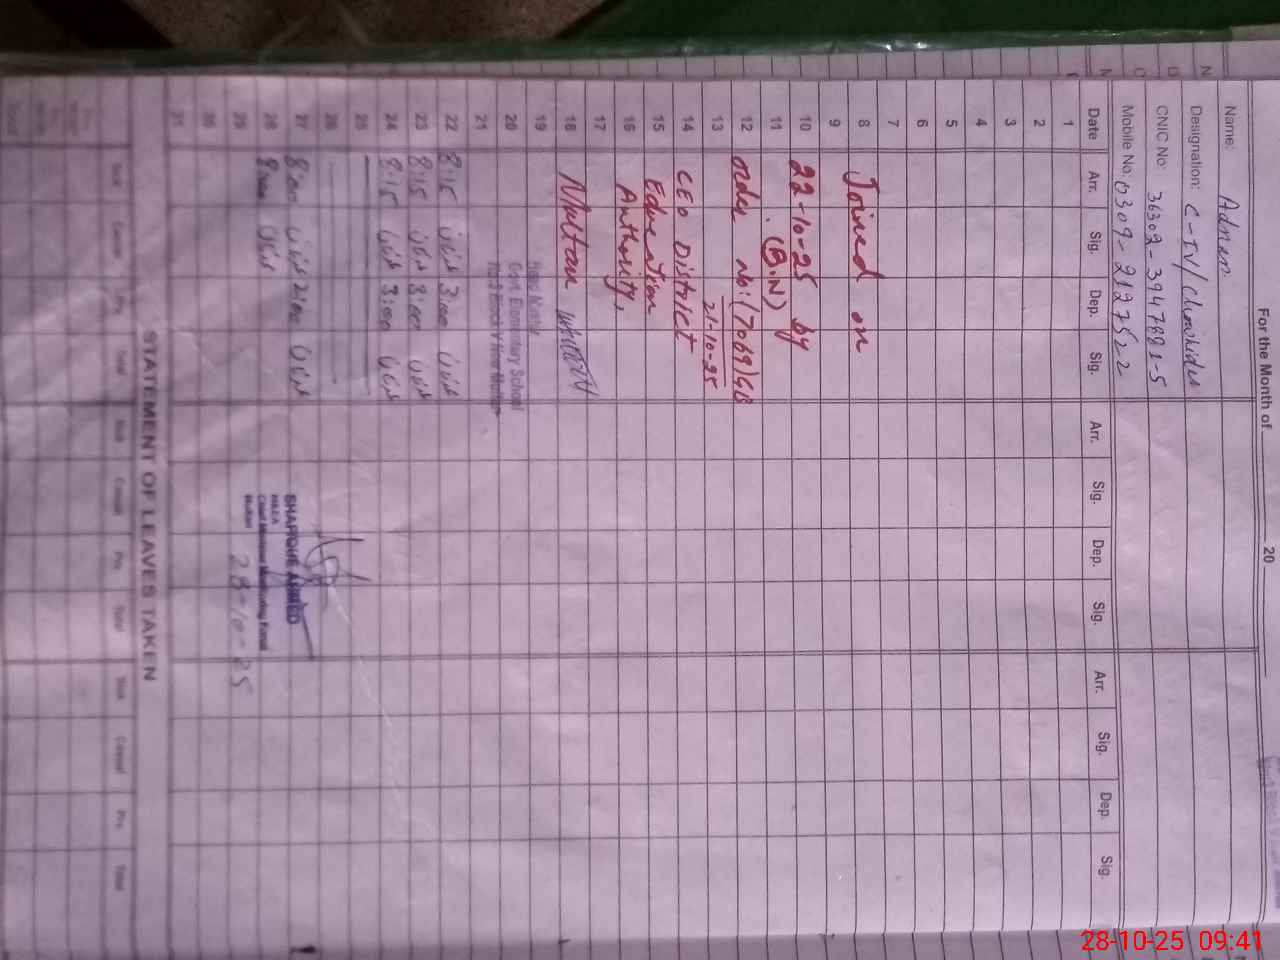 For the Month of 20
Name: Adnan
Designation: C-IV/Chowkider
CNIC No: 36302-3947881-5
Mobile No: 0309-2127522
Date Arr. Sig. Dep. Sig. Arr. Sig. Dep. Sig. Arr. Sig. Dep. Sig.
1
2
3
4
5
6
7
8 Joined on
9
10 22-10-25 by
11 (B.N)
12 order No: (7069)GB
13 21-10-25
14 CEO District
15 Education
16 Authority,
17
18 Multan
19 Head Master
20 Govt. Elementary School
21 Block V New Multan
22 8:15 عدنان 3:00 عدنان
23 8:15 عدنان 3:00 عدنان
24 8:15 عدنان 3:00 عدنان
25
26
27 8:00 عدنان 2:00 عدنان
28 8:00 عدنان
29
30
31
SHAFIQUE AHMED
MEA
Chief Minister Monitoring Force
Multan
28-10-25
STATEMENT OF LEAVES TAKEN
Casual Prv. Total Casual Prv. Total Casual Prv. Total
28-10-25 09:41